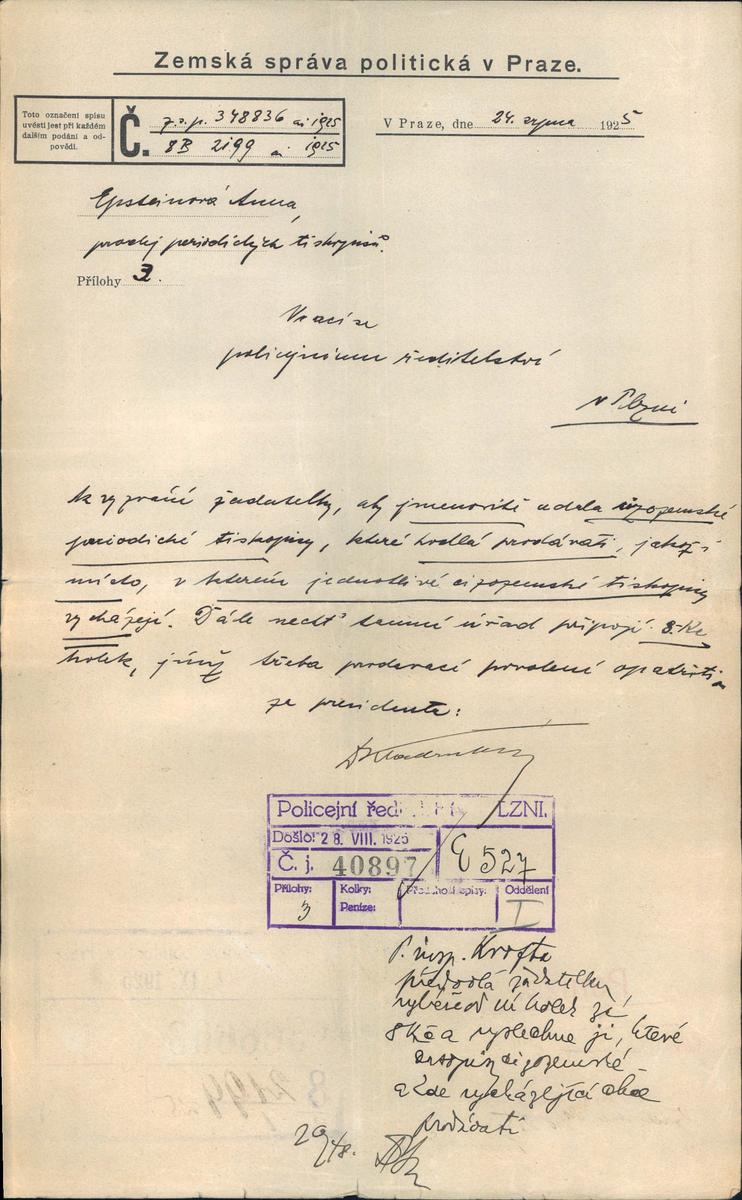 Zemská správa politická v Praze.
Toto označení spisu
uvésti jest při každém
dalším podání a od-
povědi.
Č. z.s.p. 348836 ai 1925
8B 2199 ai 1925
V Praze, dne 24. srpna 1925
Epsteinová Anna,
prodej periodických tiskopisů.
Přílohy 3.
Vrací se
policejnímu ředitelství
v Plzni
k vyzvání žadatelky, aby jmenovitě udala cizozemské
periodické tiskopisy, které hodlá prodávati, jakož i
místo, v kterém jednotlivé cizozemské tiskopisy
vycházejí. Dále nechť tamní úřad připojí 8-Kč
kolek, jímž třeba prodavací povolení opatřiti.
za presidenta:
Policejní řed LZNI.
Došlo: 28. VIII. 1925
Č. j. 40897
E 527
Přílohy: 3
Kolky:
Peníze:
Předchozí spisy:
Oddělení
I
P. insp. Krofta
předvolá žadatelku
vybéře od ní kolek za
8 Kč a vyslechne ji, které
časopisy cizozemské
a kde vycházející chce
prodávati
29/8.